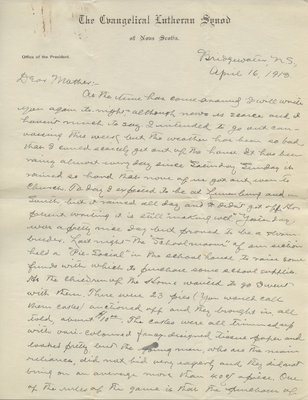 The Evangelical Lutheran Synod
of Nova Scotia.
Office of the President.
Bridgewater, N.S.,
April 16, 1913.
Dear Mother:-
As the time has come around I will write
you again to-night although news is scarce and I
haven't much to say. I intended to go out can-
vassing this week but the weather has been so bad
that I could scarcely get out of the house. It has been
raining almost every day since Saturday. Sunday it
rained so hard that none of us got out even to
Church. To-day I expected to be at Lunenburg and
but it rained all day and I didn't get off. At
present writing it is still "making wet". Yesterday
was a pretty nice day but proved to be a storm
breeder. Last night the "Schoolma'am" of our section
held a "Pie-Social" in the school house to raise some
funds with which to purchase some school supplies.
As the children of the home wanted to go I went
with them. There were 23 pies (you would call
them cakes) auctioned off and they brought in all
told, about
The cakes were all trimmed up
with vari-coloured fancy designed tissue paper and
looked pretty but the young men, who are the main
reliance, did not bid very eagerly and they did not
bring on an average more than 40¢ apiece. One
of the rules of the game is that the purchaser of